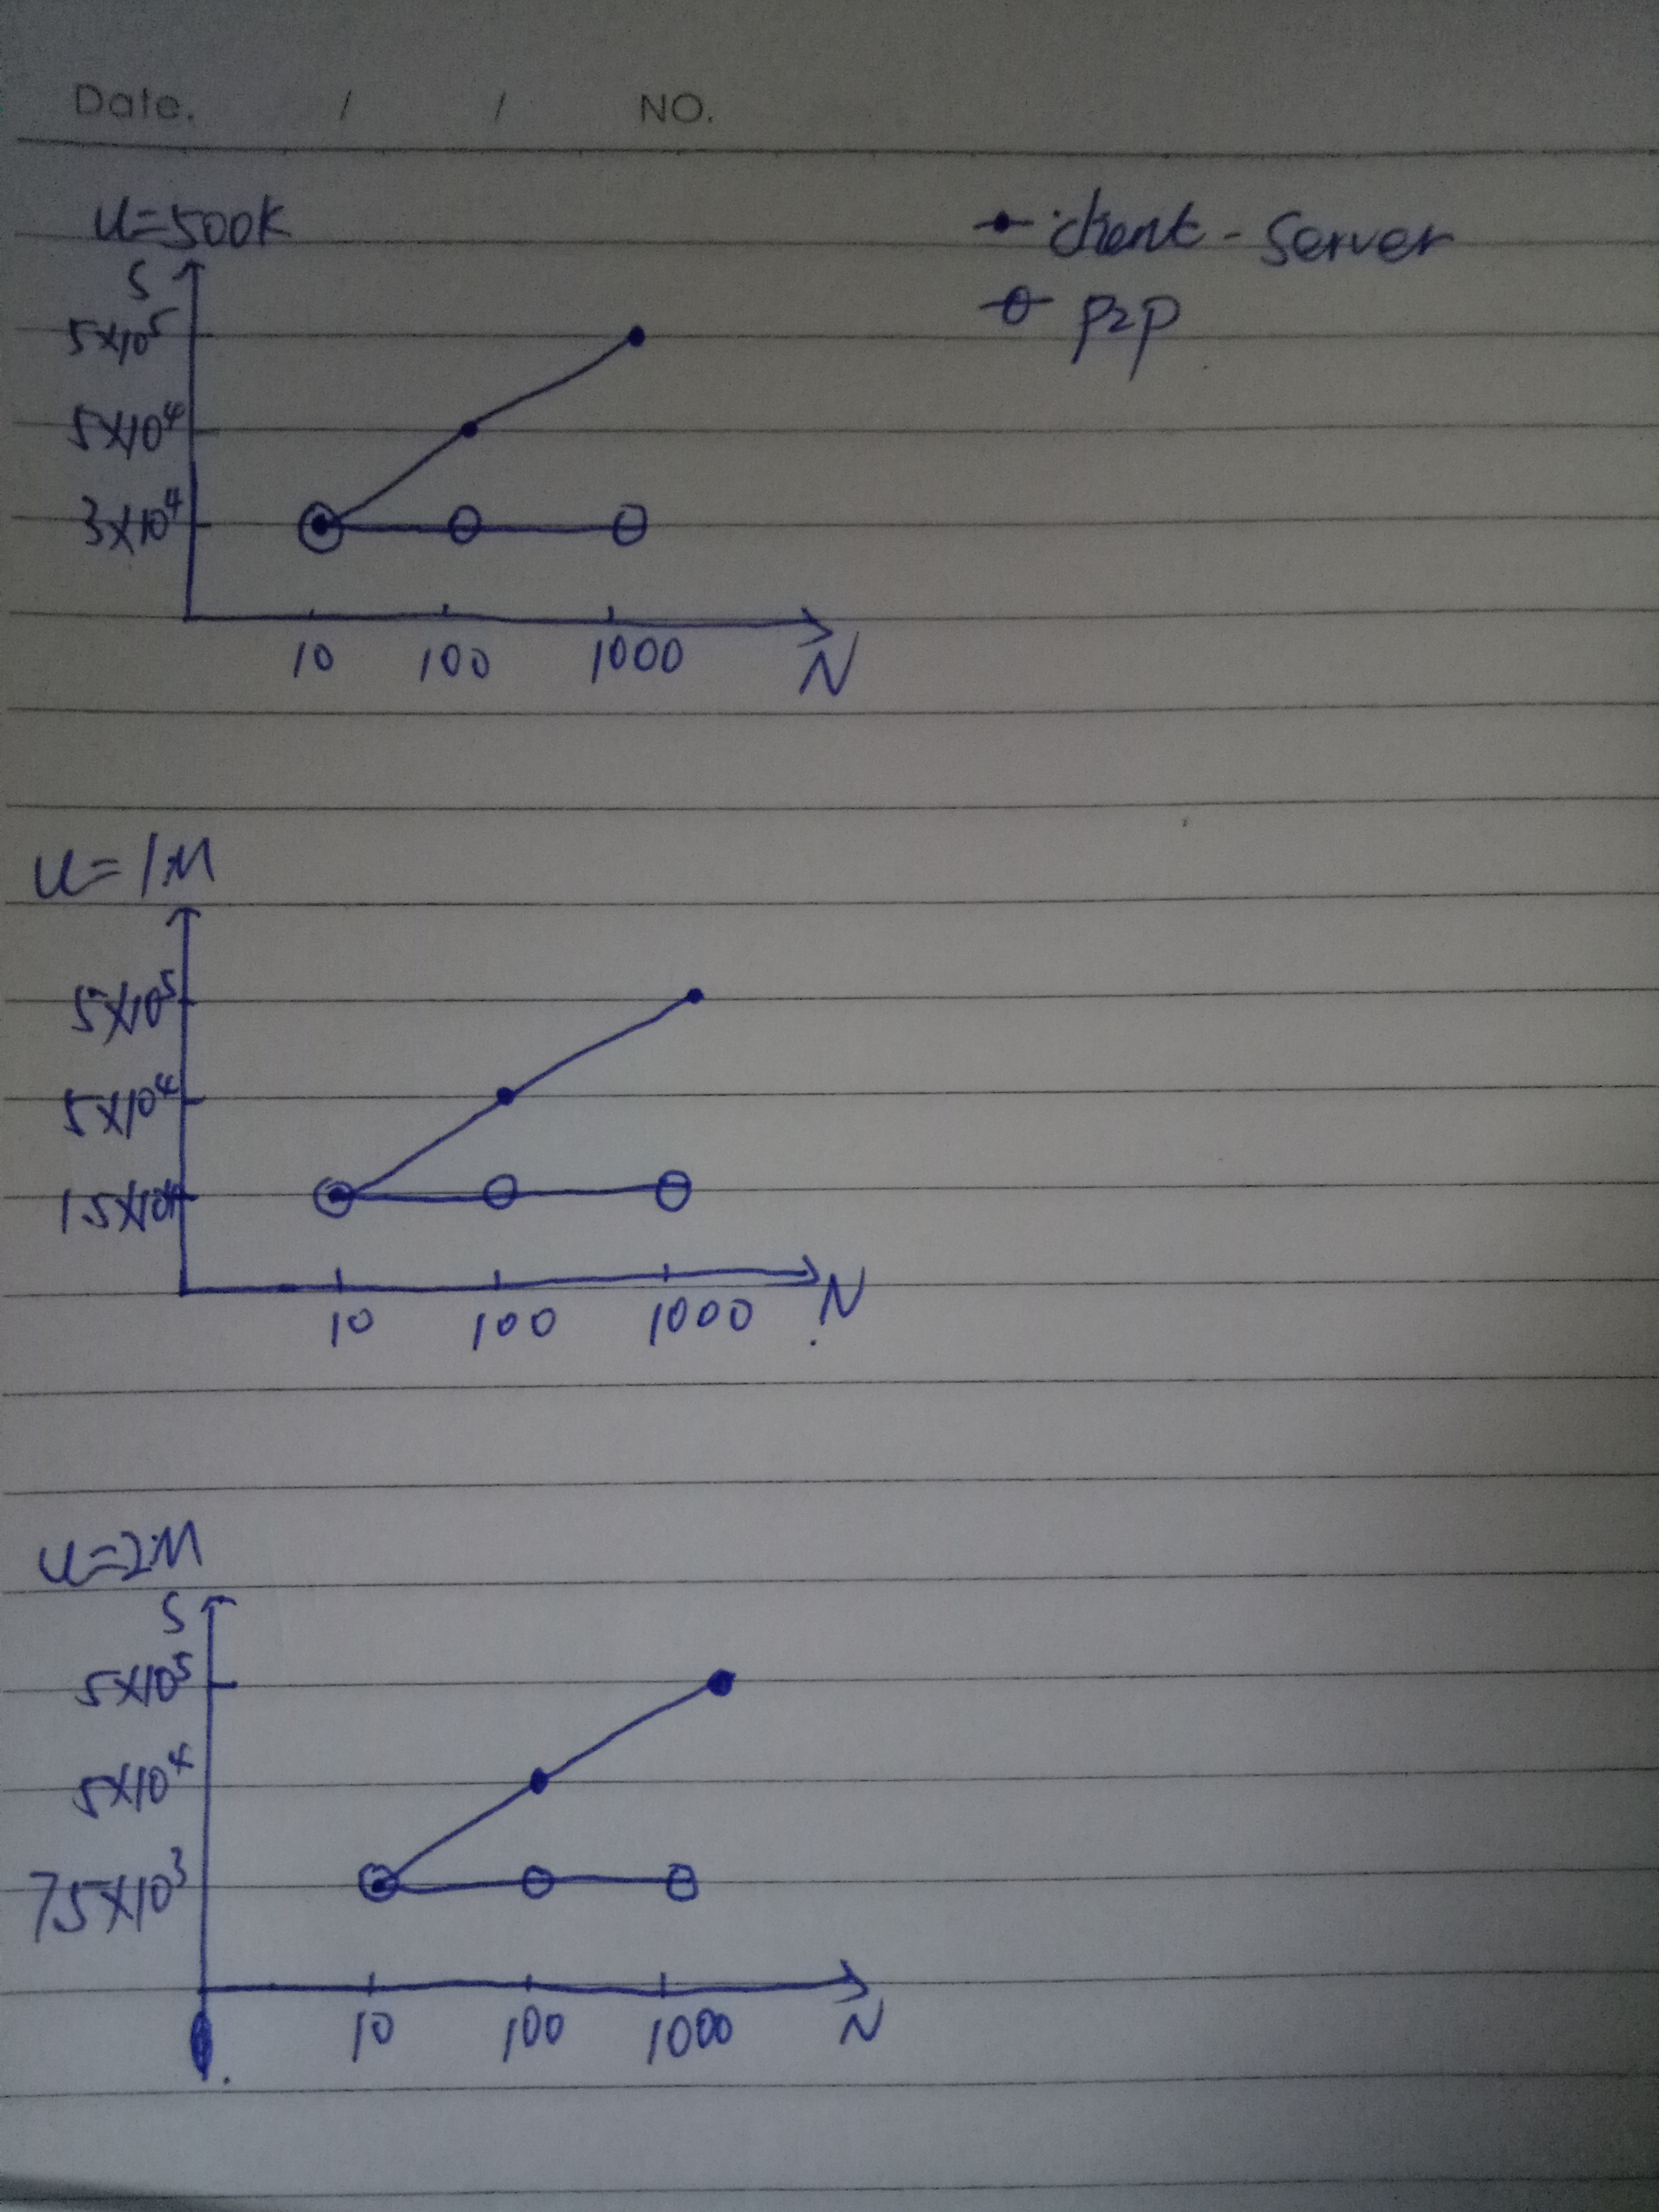 Date. / / NO.
u=500k
client-server
p2p
S
5×10⁵
5×10⁴
3×10⁴
10 100 1000 N
u=1M
5×10⁵
5×10⁴
10 100 1000 N
u=2M
S
5×10⁵
5×10⁴
75×10³
10 100 1000 N